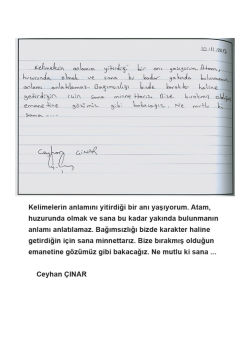 Kelimelerin anlamını yitirdiği bir anı yaşıyorum. Atam,
huzurunda olmak ve sana bu kadar yakında bulunmanın
anlamı anlatılamaz. Bağımsızlığı bizde karakter haline
getirdiğin için sana minnettarız. Bize bırakmış olduğun
emanetine gözümüz gibi bakacağız. Ne mutlu ki
sana ...
Ceyhan ÇINAR
Kelimelerin anlamını yitirdiği bir anı yaşıyorum. Atam,
huzurunda olmak ve sana bu kadar yakında bulunmanın
anlamı anlatılamaz. Bağımsızlığı bizde karakter haline
getirdiğin için sana minnettarız. Bize bırakmış olduğun
emanetine gözümüz gibi bakacağız. Ne mutlu ki sana ...
Ceyhan ÇINAR